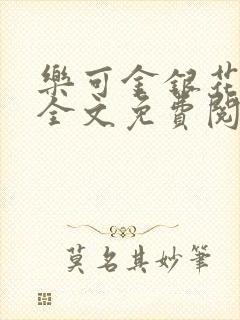 樂可金銀花
全文免費閱
莫名其妙筆